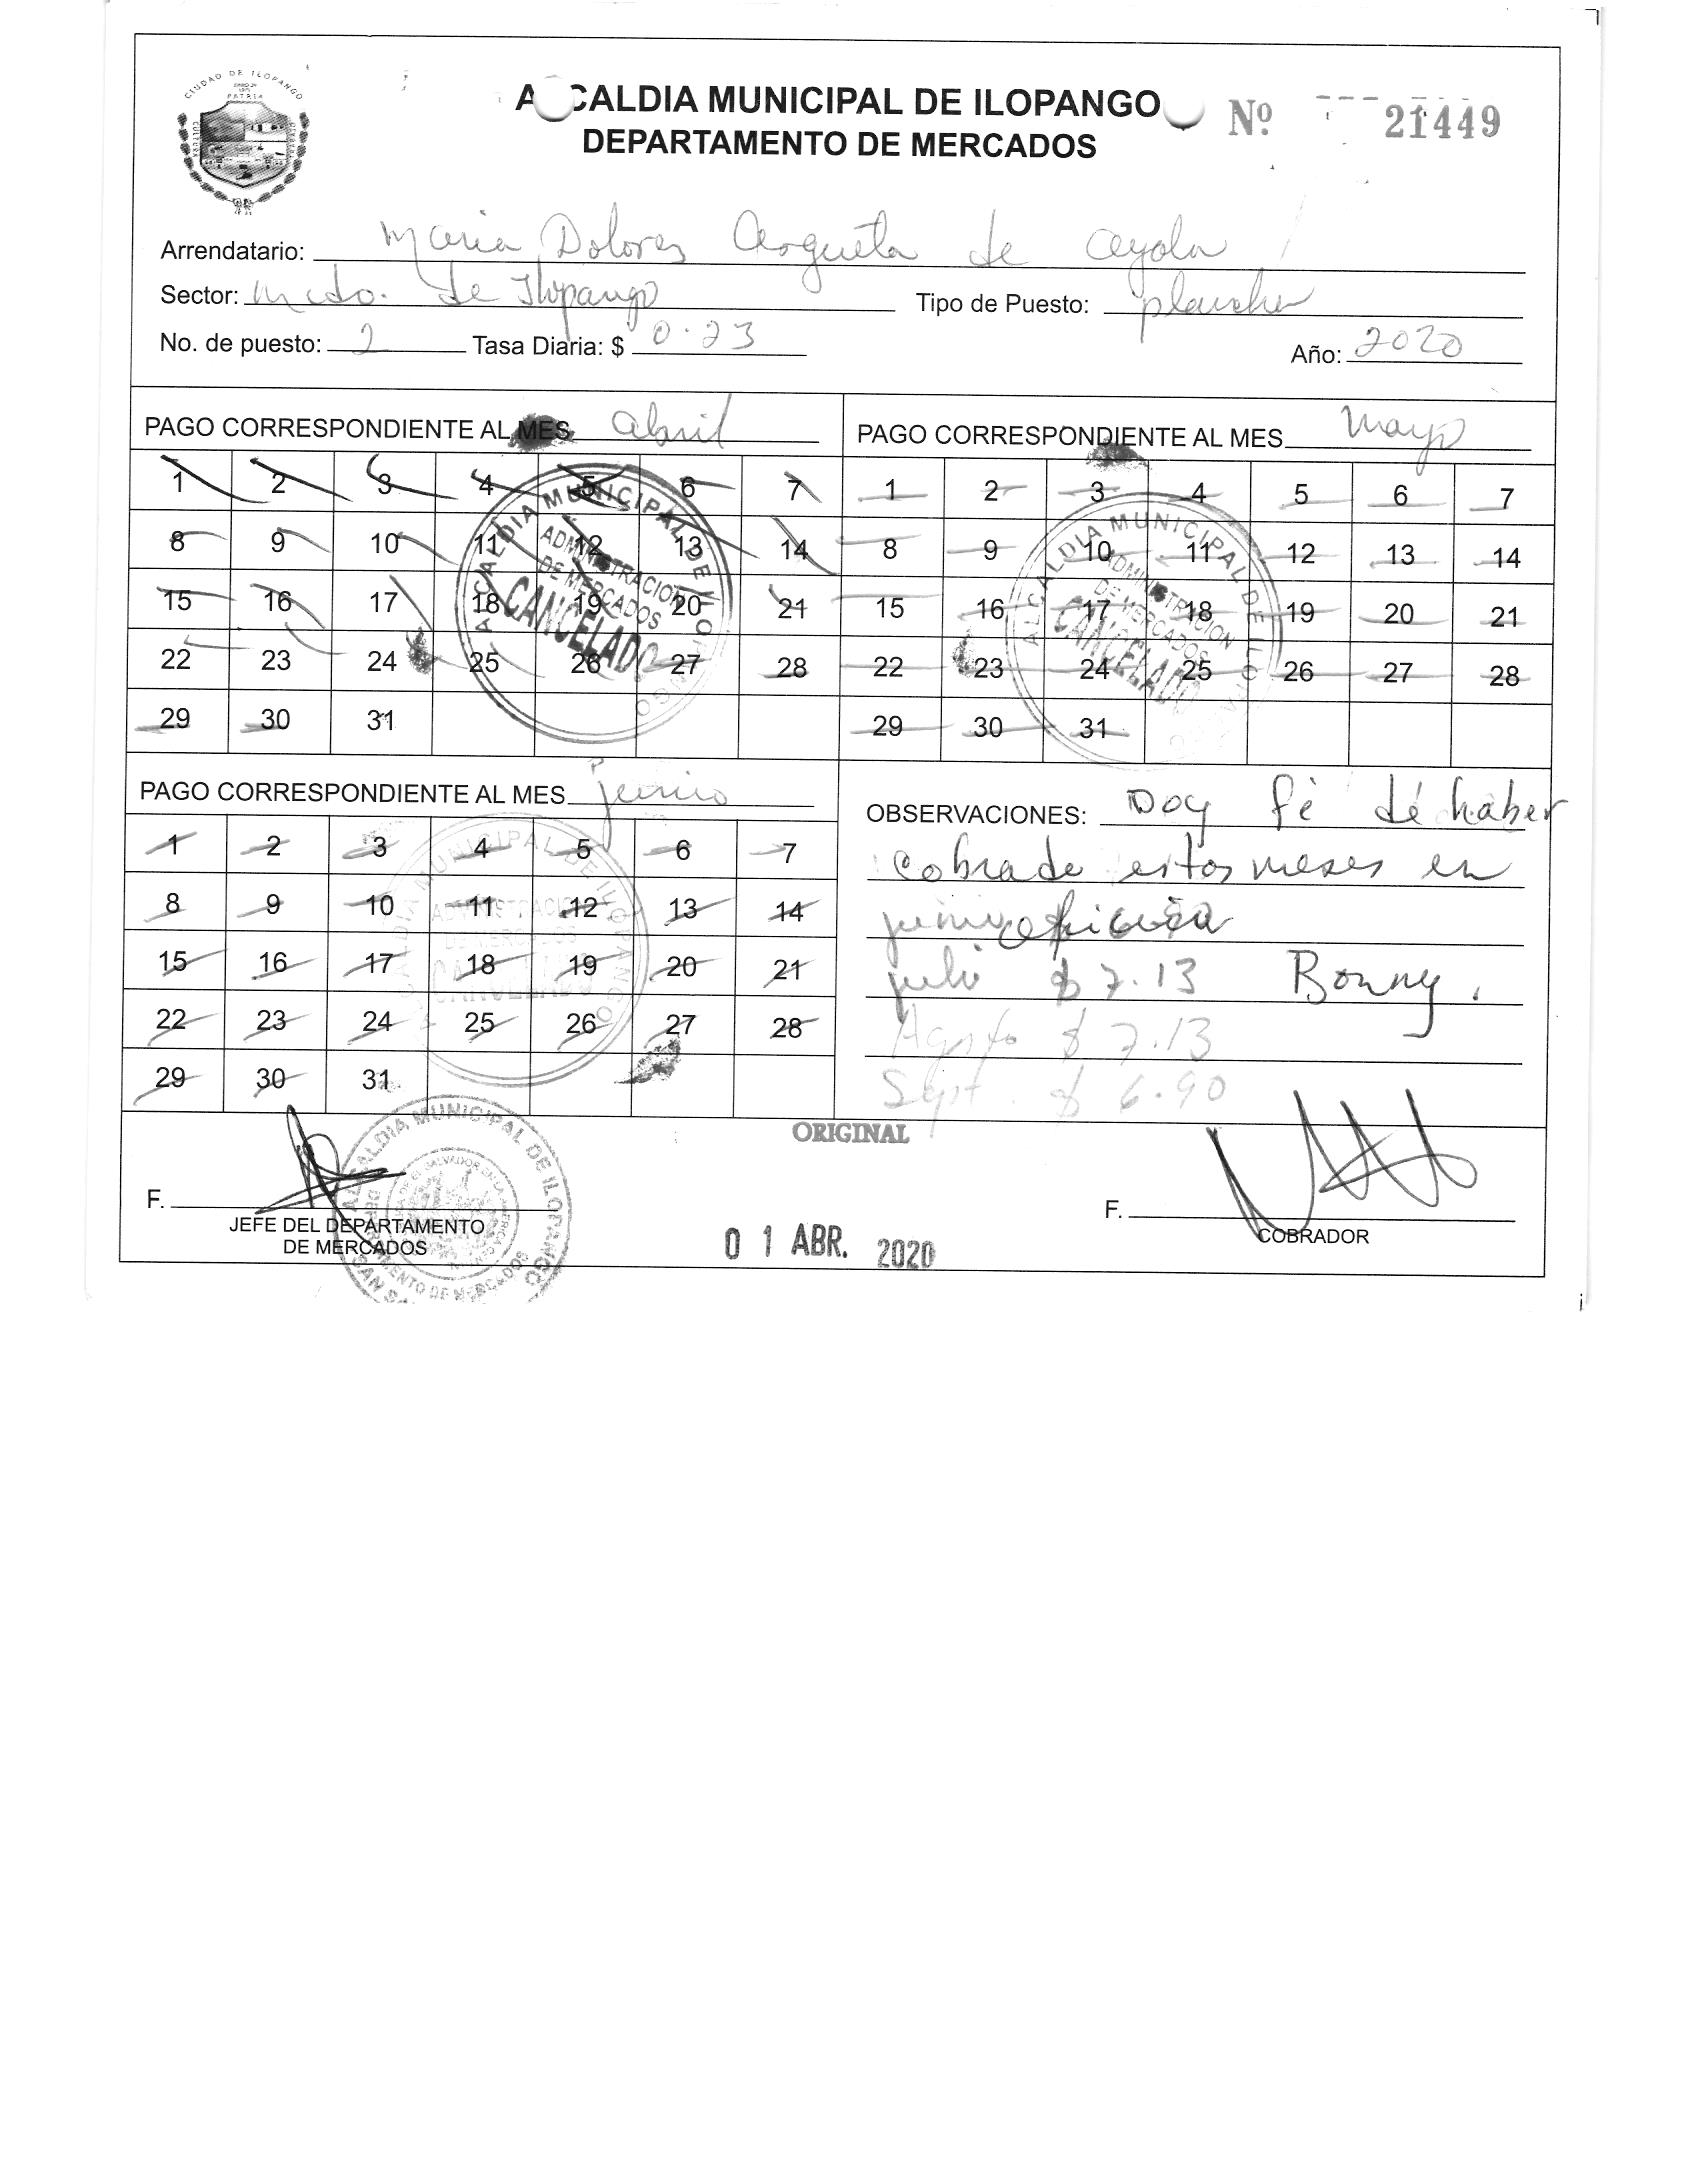 CIUDAD DE ILOPANGO
PATRIA
ALCALDIA MUNICIPAL DE ILOPANGO Nº 21449
DEPARTAMENTO DE MERCADOS
Arrendatario: Maria Dolores Argueta de Ayala
Sector: Mcdo. de Ilopango Tipo de Puesto: plancha
No. de puesto: 2 Tasa Diaria: $ 0.23 Año: 2020
PAGO CORRESPONDIENTE AL MES abril
1 2 3 4 5 6 7
8 9 10 11 12 13 14
15 16 17 18 19 20 21
22 23 24 25 26 27 28
29 30 31
ALCALDIA MUNICIPAL DE ILOPANGO
ADMINISTRACION
DE MERCADOS
CANCELADO
PAGO CORRESPONDIENTE AL MES mayo
1 2 3 4 5 6 7
8 9 10 11 12 13 14
15 16 17 18 19 20 21
22 23 24 25 26 27 28
29 30 31
ALCALDIA MUNICIPAL DE ILOPANGO
ADMINISTRACION
DE MERCADOS
CANCELADO
PAGO CORRESPONDIENTE AL MES junio
1 2 3 4 5 6 7
8 9 10 11 12 13 14
15 16 17 18 19 20 21
22 23 24 25 26 27 28
29 30 31
MUNICIPAL DE ILOPANGO
ADMINISTRACION
DE MERCADOS
CANCELADO
OBSERVACIONES: Doy fé dé haber
cobrado estos meses en
julio $ 7.13 Bonny.
Agosto $ 7.13
Sept. $ 6.90
ORIGINAL
F.
JEFE DEL DEPARTAMENTO
DE MERCADOS
ALCALDIA MUNICIPAL DE ILOPANGO
DEPARTAMENTO DE MERCADOS
0 1 ABR. 2020
F.
COBRADOR